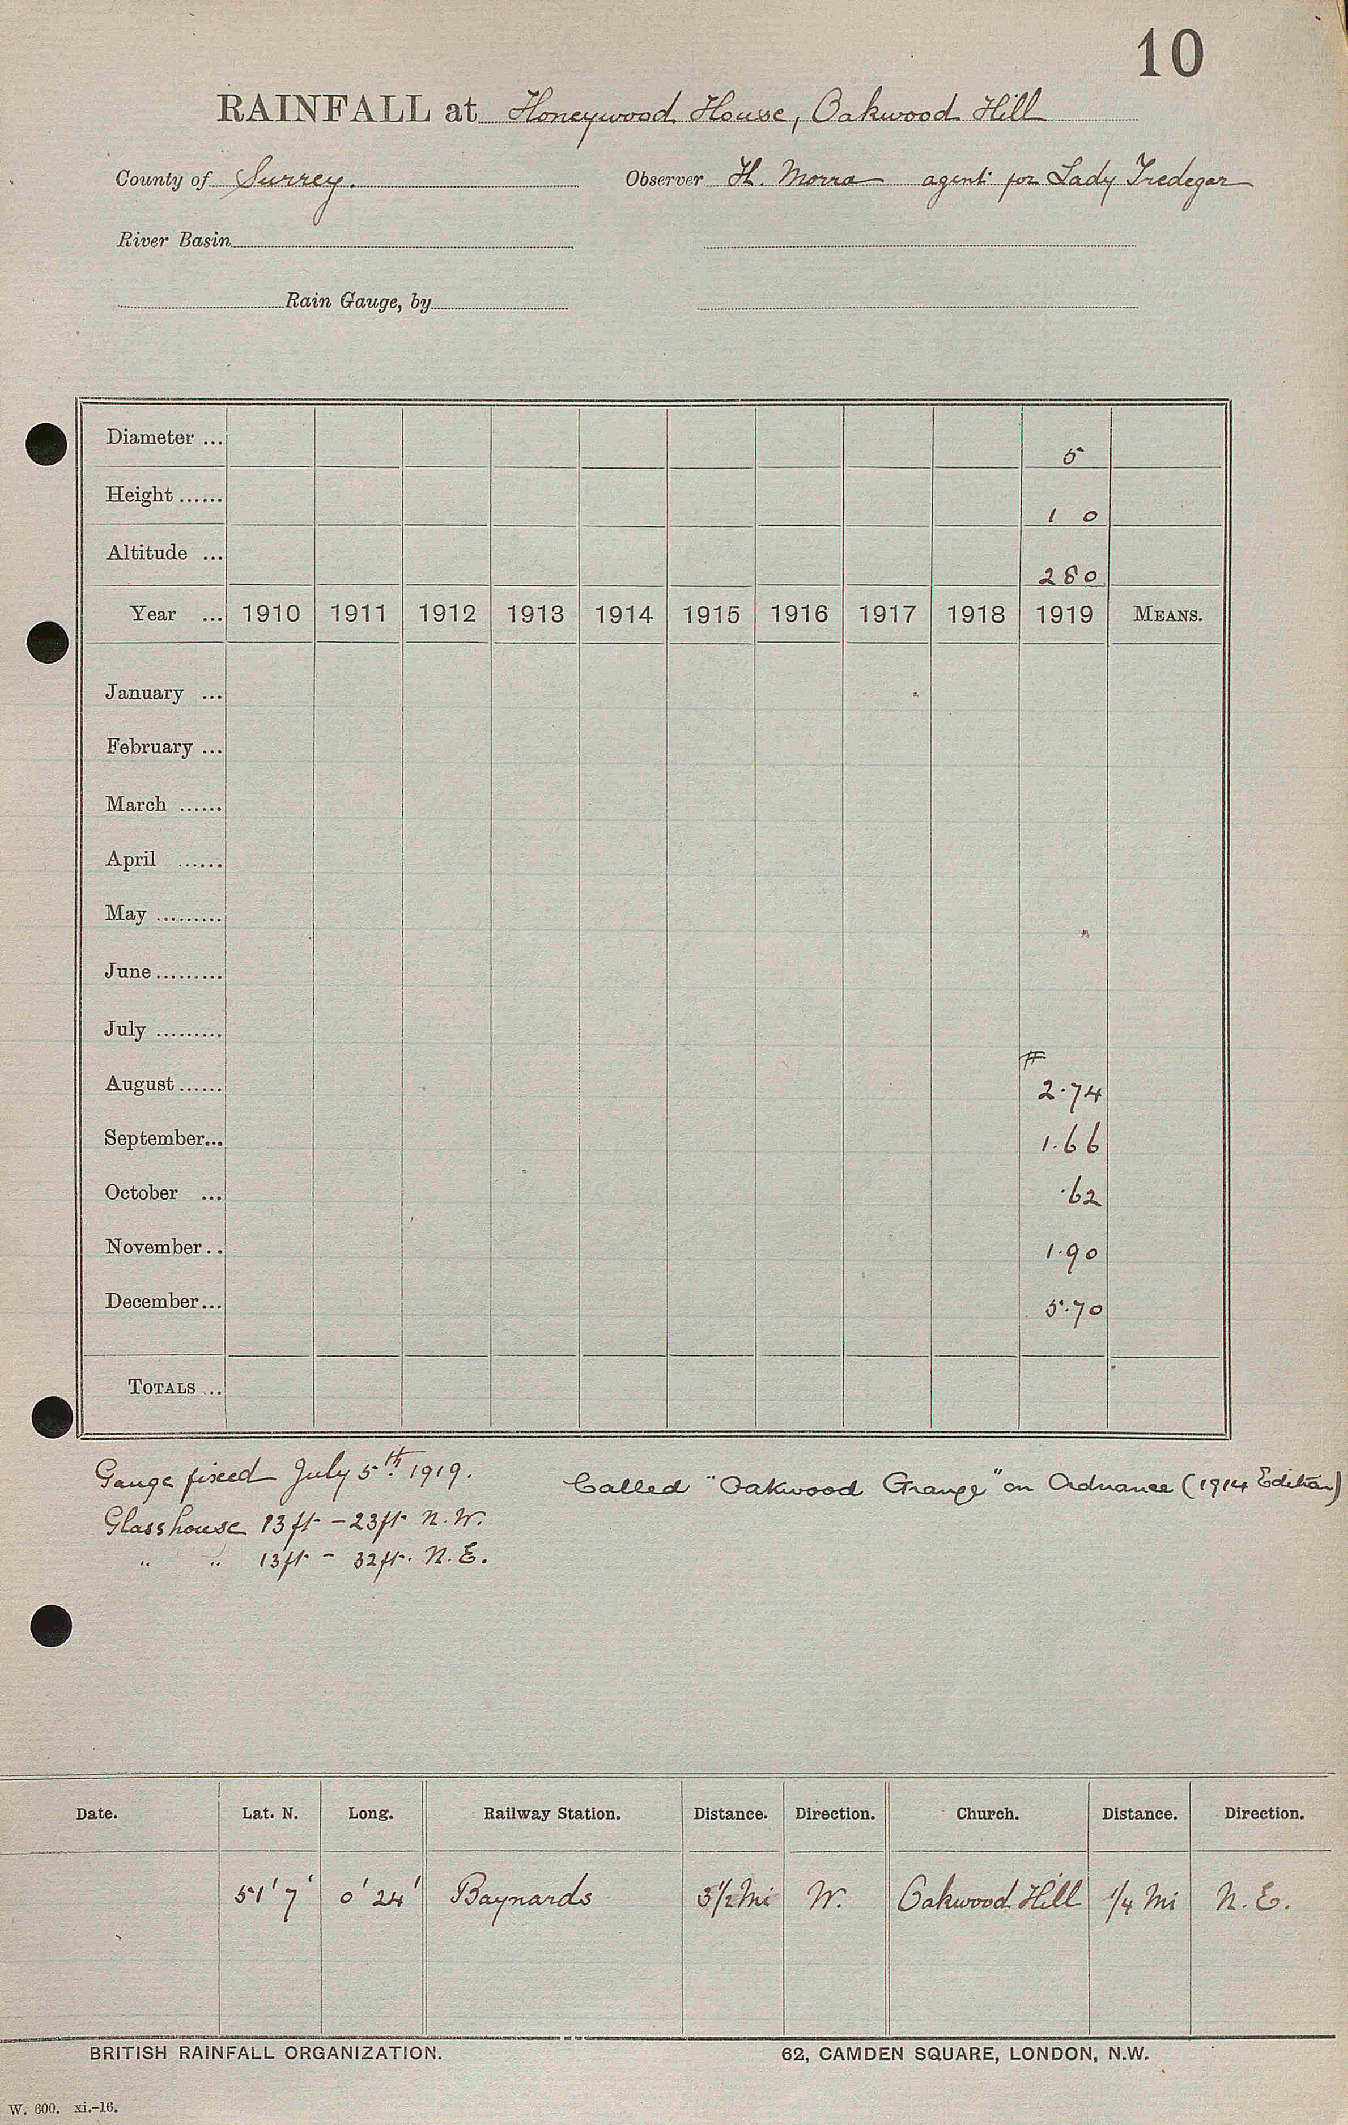 10
RAINFALL at Honeywood House, Oakwood Hill
County of Surrey. Observer H. Morra agent for Lady Tredegar
River Basin
Rain Gauge, by
Diameter ... 5
Height ...... 1 0
Altitude ... 280
Year ... 1910 1911 1912 1913 1914 1915 1916 1917 1918 1919 MEANS.
January ...
February ...
March ......
April ......
May .........
June .........
July .........
August ...... 2.74
September... 1.66
October ... .62
November.. 1.90
December... 5.70
TOTALS ...
Gauge fixed July 5th. 1919.
Called "Oakwood Grange" on Ordnance (1914 Edition)
Glasshouse 13ft - 23ft. N.W.
" " 13ft - 32ft. N.E.
Date. Lat. N. Long. Railway Station. Distance. Direction. Church. Distance. Direction.
51' 7' 0' 24' Baynards 3½ Mi W. Oakwood Hill ¼ Mi N.E.
BRITISH RAINFALL ORGANIZATION. 62, CAMDEN SQUARE, LONDON, N.W.
W. 600. xi.-16.